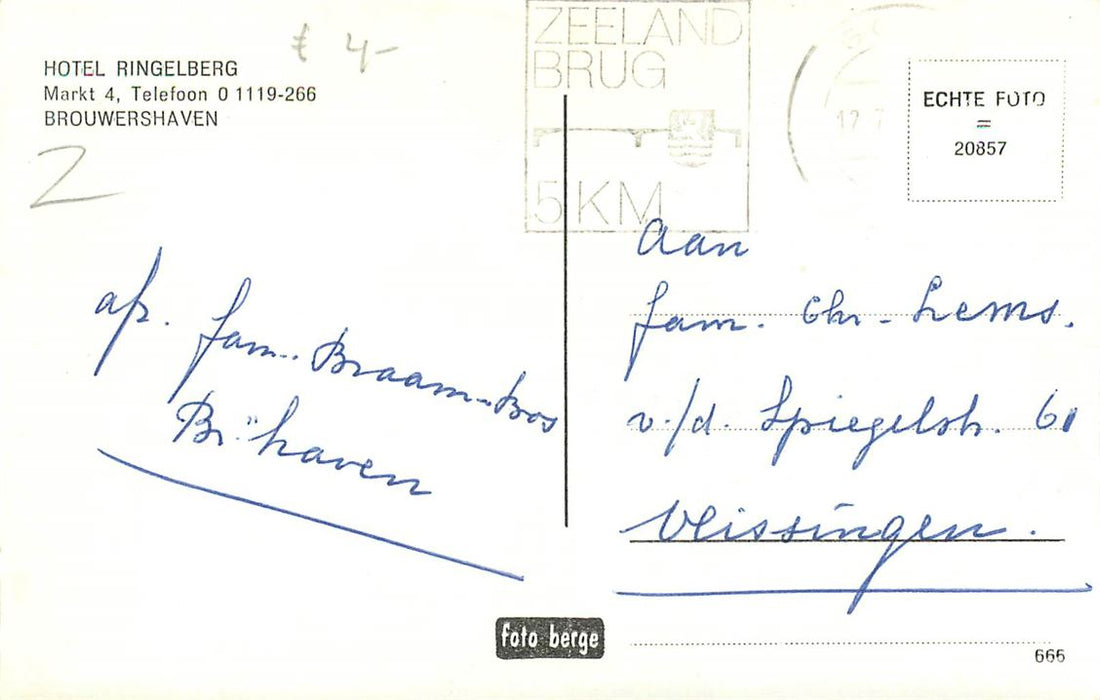 € 4,-
HOTEL RINGELBERG
Markt 4, Telefoon 0 1119-266
BROUWERSHAVEN
Z
afz. fam. Braam-Bos
Br."haven
ZEELAND
BRUG
5 KM
12 7
ECHTE FOTO
=
20857
Aan
fam. Chr. Lems.
v./d. Spiegelstr. 61
Vlissingen.
foto berge
666